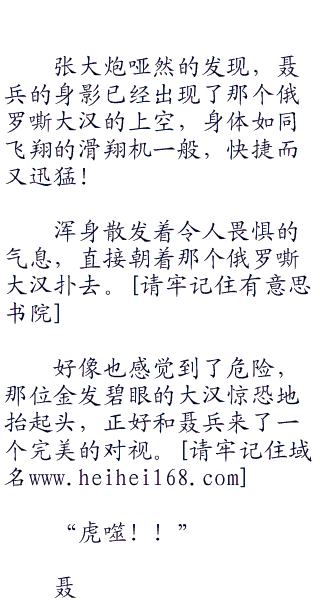 张大炮哑然的发现，聂
兵的身影已经出现了那个俄
罗嘶大汉的上空，身体如同
飞翔的滑翔机一般，快捷而
又迅猛！
浑身散发着令人畏惧的
气息，直接朝着那个俄罗嘶
大汉扑去。[请牢记住有意思
书院]
好像也感觉到了危险，
那位金发碧眼的大汉惊恐地
抬起头，正好和聂兵来了一
个完美的对视。[请牢记住域
名www.heihei168.com]
“虎噬！！”
聂